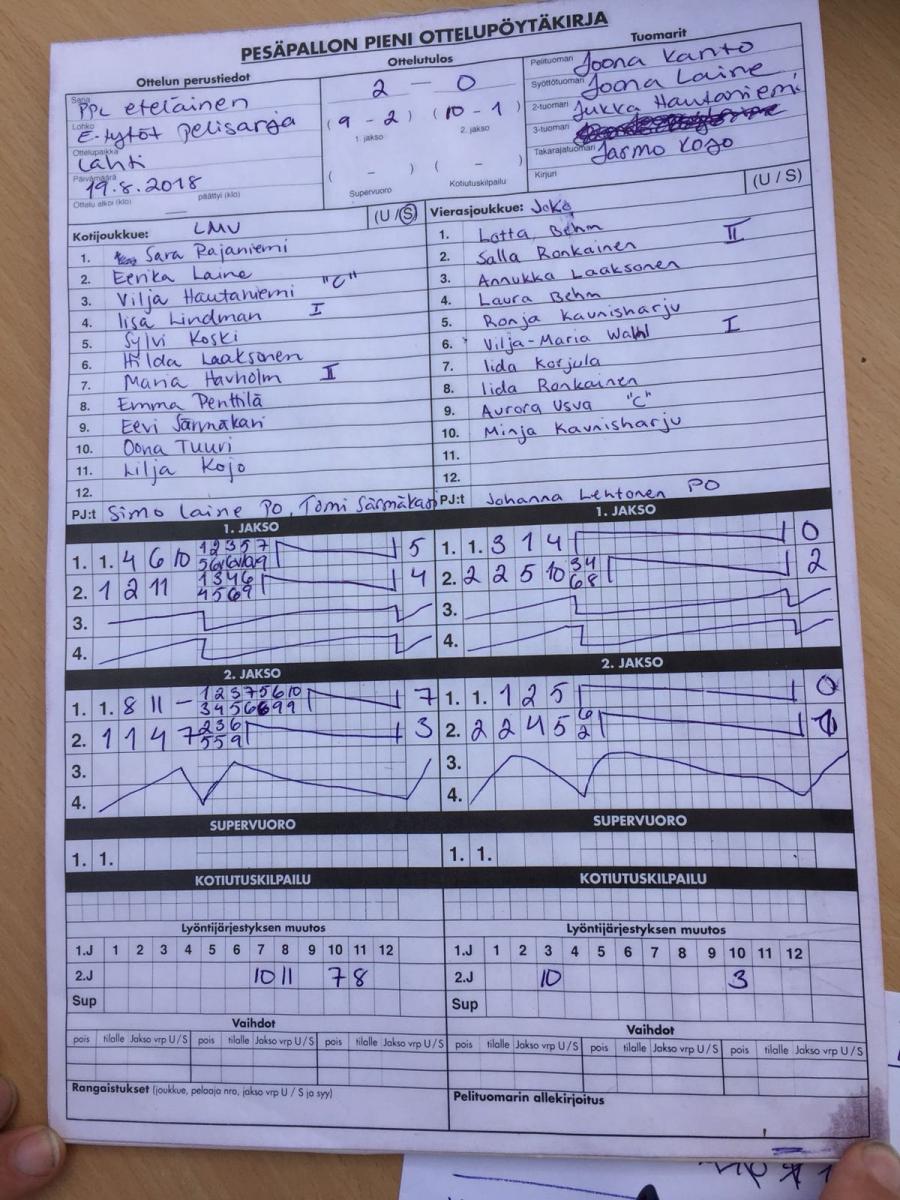 PESÄPALLON PIENI OTTELUPÖYTÄKIRJA
Ottelun perustiedot
Sarja PPL eteläinen
Lohko E-tytöt pelisarja
Ottelupaikka Lahti
Päivämäärä 19.8.2018
Ottelu alkoi (klo) — päättyi (klo)
Ottelutulos
2 — 0
(9 - 2) (10 - 1)
1. jakso 2. jakso
( - ) ( - )
Supervuoro Kotiutuskilpailu
Tuomarit
Pelituomari Joona Kanto
Syöttötuomari Joona Laine
2-tuomari Jukka Hautaniemi
3-tuomari
Takarajatuomari Jarmo Kojo
Kirjuri
Kotijoukkue: LMV (U/S)
1. Sara Rajaniemi
2. Eerika Laine
3. Vilja Hautaniemi "C"
4. Iisa Lindman I
5. Sylvi Koski
6. Hilda Laaksonen
7. Maria Havholm II
8. Emma Penttilä
9. Eevi Särmäkari
10. Oona Tuuri
11. Lilja Kojo
12.
PJ:t Simo Laine PO, Tomi Särmäkari
Vierasjoukkue: JoKe (U/S)
1. Lotta Behm
2. Salla Ronkainen II
3. Annukka Laaksonen
4. Laura Behm
5. Ronja Kaunisharju
6. Vilja-Maria Wahl I
7. Iida Korjula
8. Iida Ronkainen
9. Aurora Usva "C"
10. Minja Kaunisharju
11.
12.
PJ:t Johanna Lehtonen PO
1. JAKSO
1. 1. 4 6 10 1 2 3 5 7 5
2. 1 2 11 1 3 4 6 4 5 6 9 4
3.
4.
1. JAKSO
1. 1. 3 1 4 0
2. 2 2 5 10 3 4 6 8 2
3.
4.
2. JAKSO
1. 1. 8 11 - 7
2. 1 1 4 7 2 3 6 5 5 9 3
3.
4.
2. JAKSO
1. 1. 1 2 5 0
2. 2 2 4 5 6 2 1
3.
4.
SUPERVUORO
1. 1.
SUPERVUORO
1. 1.
KOTIUTUSKILPAILU
KOTIUTUSKILPAILU
Lyöntijärjestyksen muutos
1.J 1 2 3 4 5 6 7 8 9 10 11 12
2.J 10 11 7 8
Sup
Lyöntijärjestyksen muutos
1.J 1 2 3 4 5 6 7 8 9 10 11 12
2.J 10 3
Sup
Vaihdot
pois tilalle Jakso vrp U/S pois tilalle Jakso vrp U/S pois tilalle Jakso vrp U/S
Vaihdot
pois tilalle Jakso vrp U/S pois tilalle Jakso vrp U/S pois tilalle Jakso vrp U/S
Rangaistukset (joukkue, pelaaja nro, jakso vrp U / S ja syy)
Pelituomarin allekirjoitus